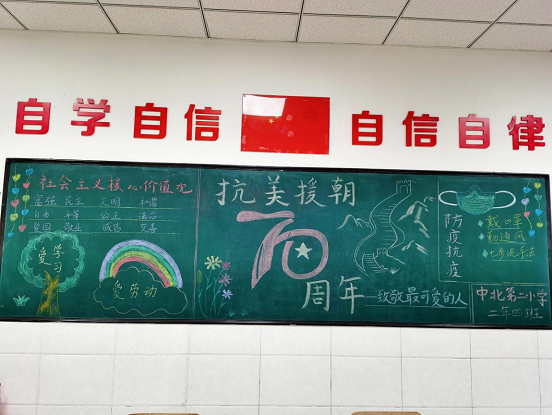 自学自信 自信自律
社会主义核心价值观
富强 民主 文明 和谐
自由 平等 公正 法治
爱国 敬业 诚信 友善
爱学习
爱劳动
抗美援朝
70
周年
—致敬最可爱的人
防疫抗疫
戴口罩
勤通风
七步洗手法
中北第二小学
二年四班